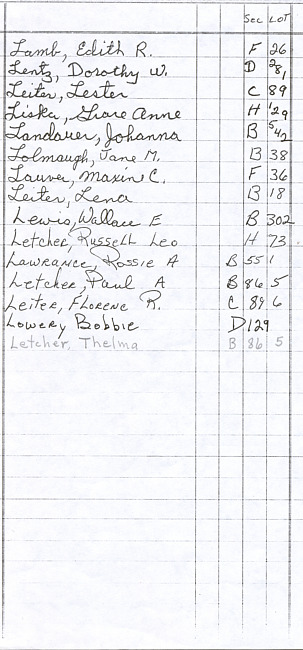 Sec Lot
Lamb, Edith R. F 26
Lentz, Dorothy W. D 28,
Leiter, Lester C 89
Liska, Anne H 129
Landauer, Johanna B 542
Lolmaugh, Jane M. B 38
Lauver, Maxin C. F 36
Leiter, Lena B 18
Lewis, Wallace E B 302
Letcher, Russell Leo H 73
Lawrance, Rossie A B 55 1
Letcher, Paul A B 86 5
Leiter, Florene R. C 89 6
Lowery Bobbie D 129
Letcher, Thelma B 86 5